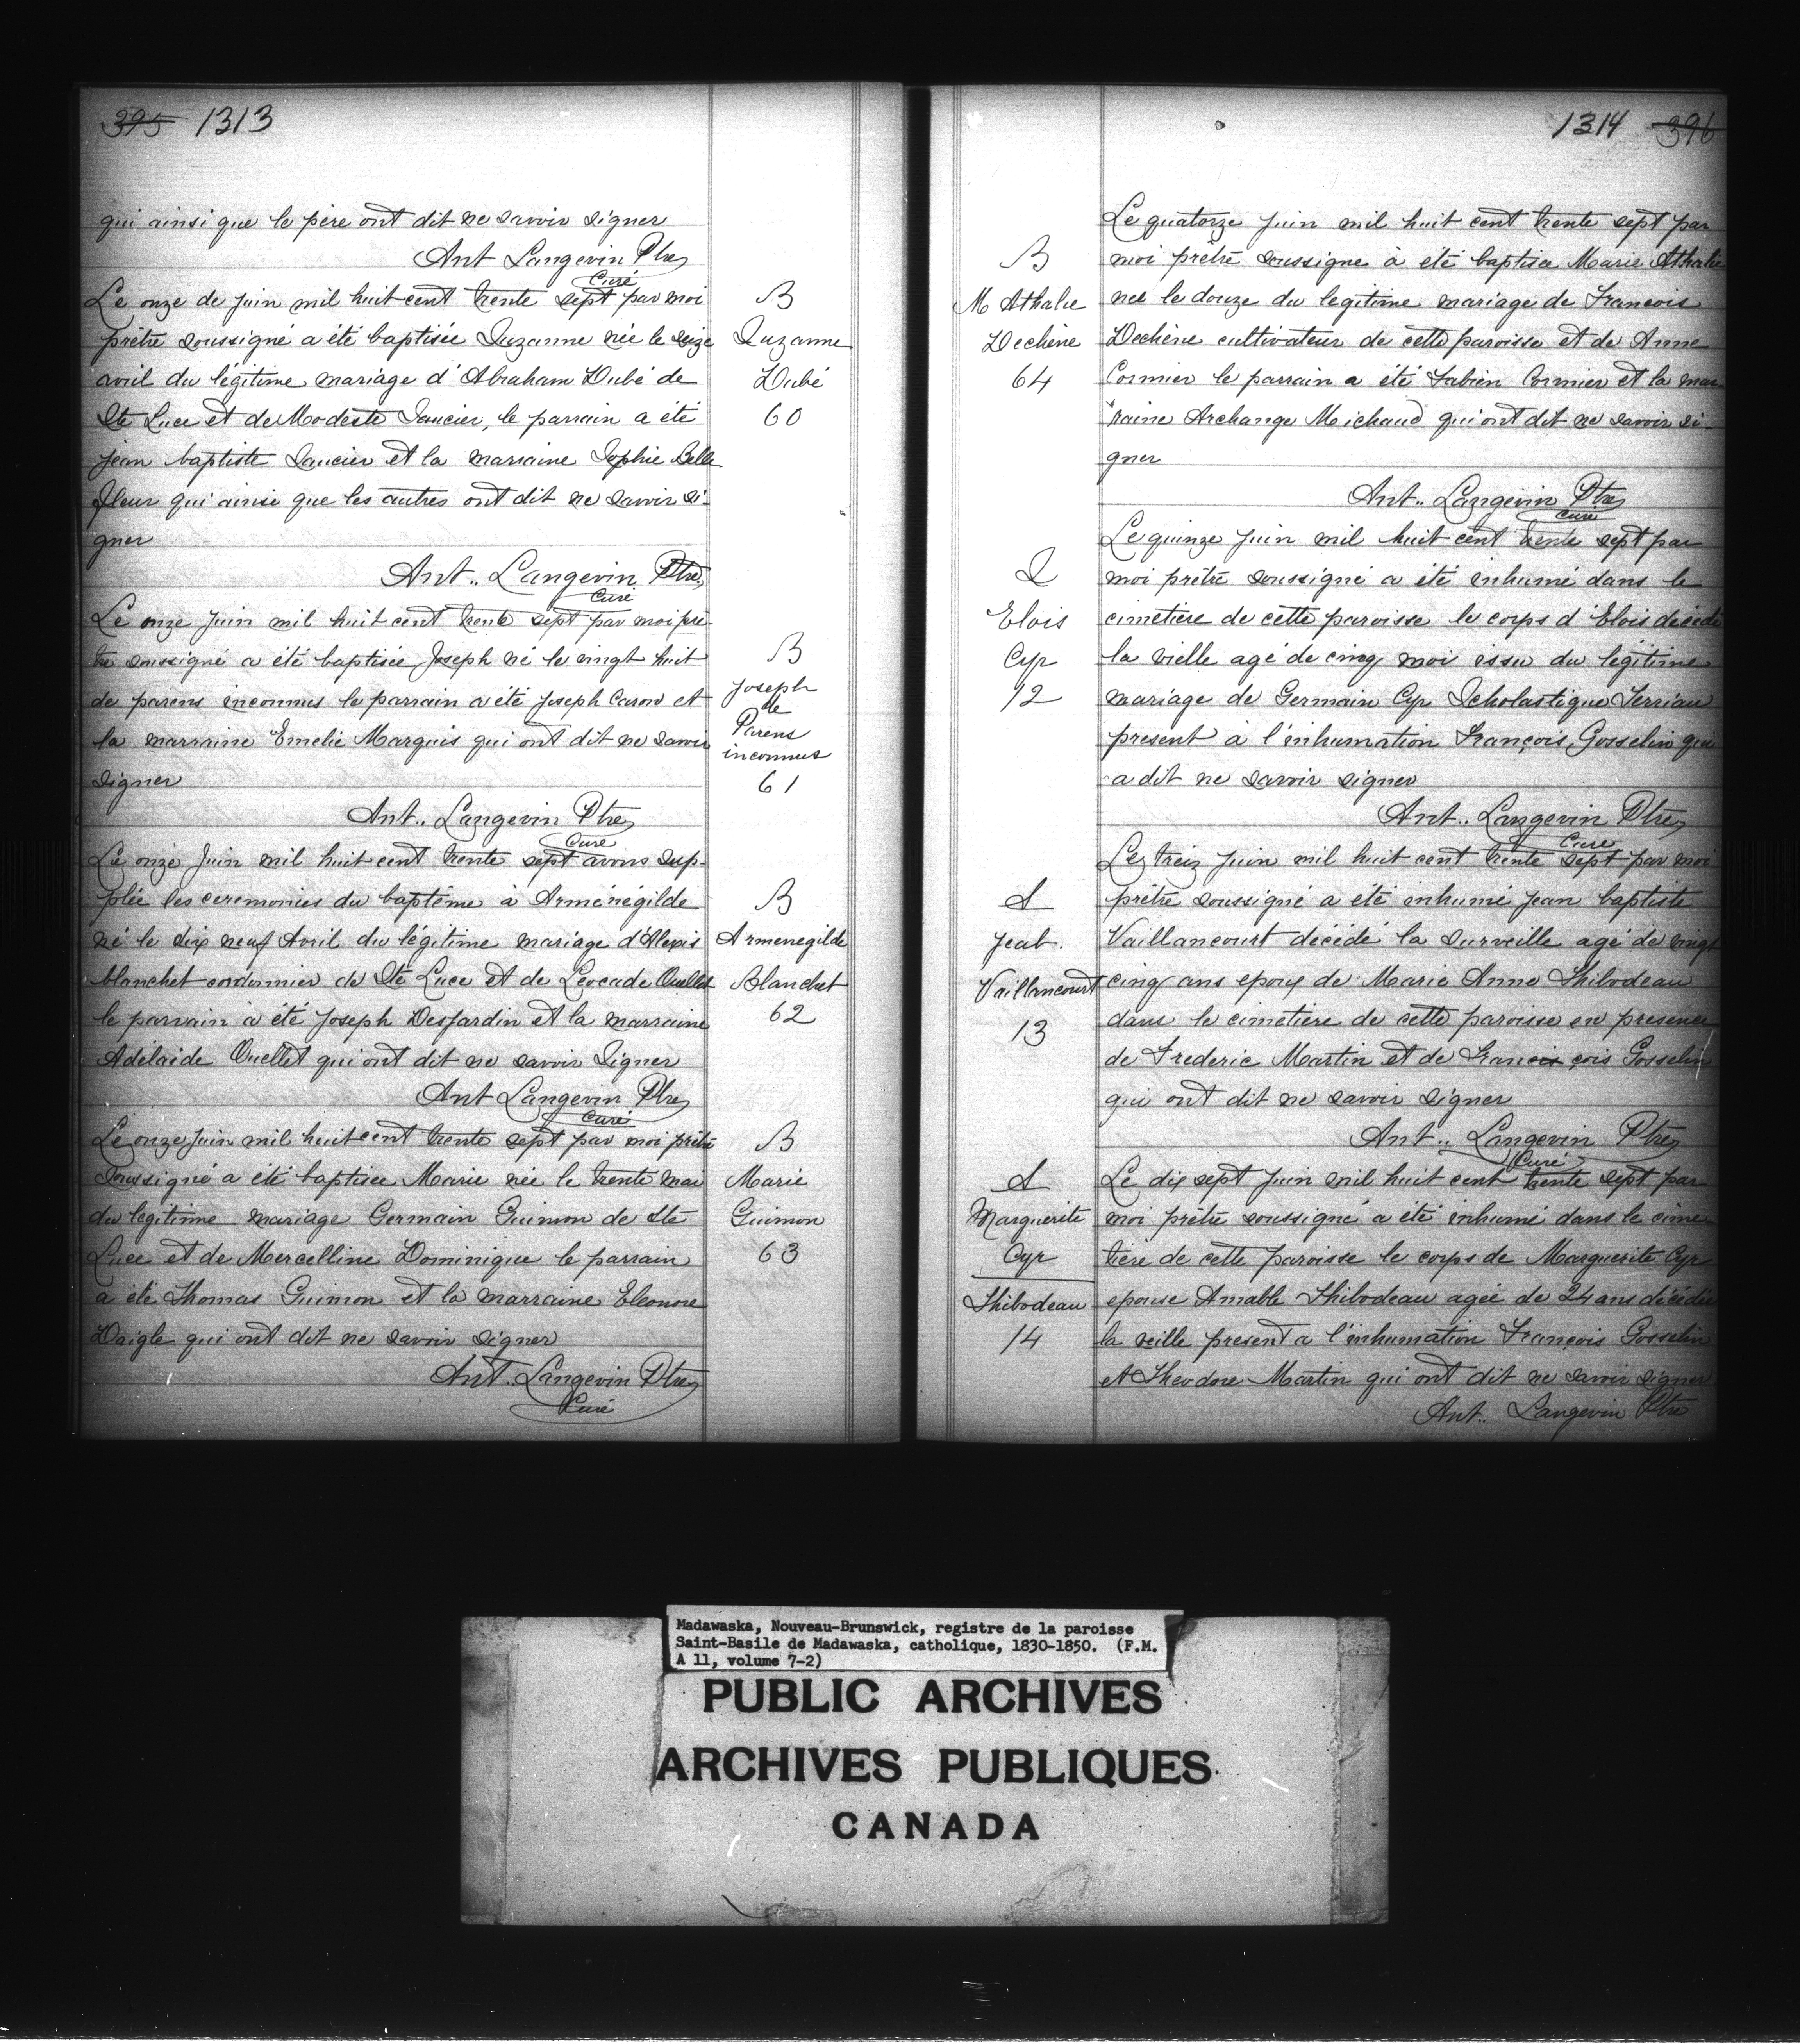 395 1313
qui ainsi que le père ont dit ne savoir signer
Ant Langevin Ptre
Curé
Le onze de juin mil huit cent trente sept par moi
prêtre soussigné a été baptisée Suzanne née le seize
avril du légitime mariage d'Abraham Dubé de
Ste Luce et de Modeste Saucier, le parrain a été
jean baptiste Saucier et la marraine Sophie Belle
fleur qui ainsi que les autres ont dit ne savoir si-
gner
Ant.. Langevin Ptre
Curé
Le onze juin mil huit cent trente sept par moi prê-
tre soussigné a été baptisée Joseph né le vingt huit
de parens inconnus le parrain a été Joseph Caron et
la marraine Emelie Marquis qui ont dit ne savoir
signer
Ant.. Langevin Ptre
Curé
Le onze juin mil huit cent trente sept avons sup-
plée les ceremonies du baptême à Arménégilde
né le dix neuf Avril du légitime mariage d'Alexis
blanchet cordonnier de Ste Luce et de Leocade Ouellet
le parrain a été Joseph Desjardin et la marraine
Adelaide Ouellet qui ont dit ne savoir Signer
Ant Langevin Ptre
Curé
Le onze Juin mil huit cent trente sept par moi prêtre
soussigné a été baptisee Marie née le trente mai
du legitime mariage Germain Guimon de Ste
Luce et de Mercelline Dominique le parrain
a été Thomas Guimon et la marraine Eleonore
Daigle qui ont dit ne savoir signer
Ant. Langevin Ptre
Curé
B
Suzanne
Dubé
60
B
Joseph
de
Parens
inconnus
61
B
Armenegilde
Blanchet
62
B
Marie
Guimon
63
1314 396
B
M Athalie
Dechène
64
S
Elois
Cyr
12
S
Jeab.
Vaillancourt
13
S
Marguerite
Cyr
Thibodeau
14
Le quatorze juin mil huit cent trente sept par
moi prêtre soussigne a été baptisee Marie Athalie
nee le douze du legitime mariage de Francois
Dechène cultivateur de cette paroisse et de Anne
Cormier le parrain a été Fabien Cormier et la mar
raine Archange Michaud qui ont dit ne savoir si-
gner
Ant.. Langevin Ptre
Curé
Le quinze juin mil huit cent trente sept par
moi prêtre soussigné a été inhumé dans le
cimetière de cette paroisse le corps d'Elois décédé
la vielle agé de cinq moi issu du légitime
mariage de Germain Cyr Scholastique Terriau
present à l'inhumation François Gosselin qui
a dit ne savoir signer
Ant.. Langevin Ptre
Curé
Le treiz juin mil huit cent trente sept par moi
prêtre soussigné a été inhumé jean baptiste
Vaillancourt décédé la surveille agé de vingt
cinq ans epoux de Marie Anne Thibodeau
dans le cimetiere de cette paroisse en presence
de Frederic Martin et de Francis çois Gosselin
qui ont dit ne savoir signer
Ant.. Langevin Ptre
Curé
Le dix sept juin mil huit cent trente sept par
moi prêtre soussigné a été inhumé dans le cime
tière de cette paroisse le corps de Marguerite Cyr
epouse Amable Thibodeau agée de 24 ans décédée
la veille present a l'inhumation François Gosselin
et Theodore Martin qui ont dit ne savoir signer
Ant.. Langevin Ptre
Madawaska, Nouveau-Brunswick, registre de la paroisse
Saint-Basile de Madawaska, catholique, 1830-1850. (F.M.
A 11, volume 7-2)
PUBLIC ARCHIVES
ARCHIVES PUBLIQUES
CANADA